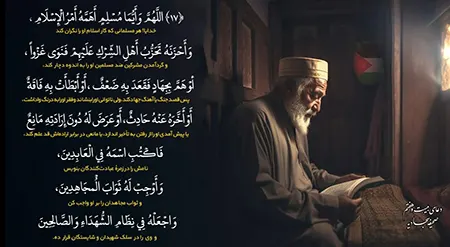 ﴿١٧﴾ اللَّهُمَّ وَ أَيُّمَا مُسْلِمٍ أَهَمَّهُ أَمْرُ الْإِسْلَامِ ،
خدایا! هر مسلمانی که کار اسلام او را نگران کند
وَ أَحْزَنَهُ تَحَزُّبُ أَهْلِ الشِّرْكِ عَلَيْهِمْ فَنَوَى غَزْواً ،
و گردآمدن مشرکین ضد مسلمین او را به اندوه دچار کند.
أَوْ هَمَّ بِجِهَادٍ فَقَعَدَ بِهِ ضَعْفٌ ، أَوْ أَبْطَأَتْ بِهِ فَاقَةٌ
پس قصد جنگ یا آهنگ جهاد کند، ولی ناتوانی او را بنشاند و فقر او را به درنگ واداشت،
أَوْ أَخَّرَهُ عَنْهُ حَادِثٌ ، أَوْ عَرَضَ لَهُ دُونَ إِرَادَتِهِ مَانِعٌ
یا پیش آمدی او را از رفتن به تأخیر اندازد، یا مانعی در برابر اراده‌اش قد علم کند.
فَاكْتُبِ اسْمَهُ فِي الْعَابِدِينَ ،
نامش را در زمرهٔ عبادت‌کنندگان بنویس
وَ أَوْجِبْ لَهُ ثَوَابَ الْمُجَاهِدِينَ ،
و ثواب مجاهدان را بر او واجب کن
وَ اجْعَلْهُ فِي نِظَامِ الشُّهَدَاءِ وَ الصَّالِحِينَ
و وی را در سلک شهیدان و شایستگان قرار ده.
دعای بیست و هفتم
صحیفه سجادیه